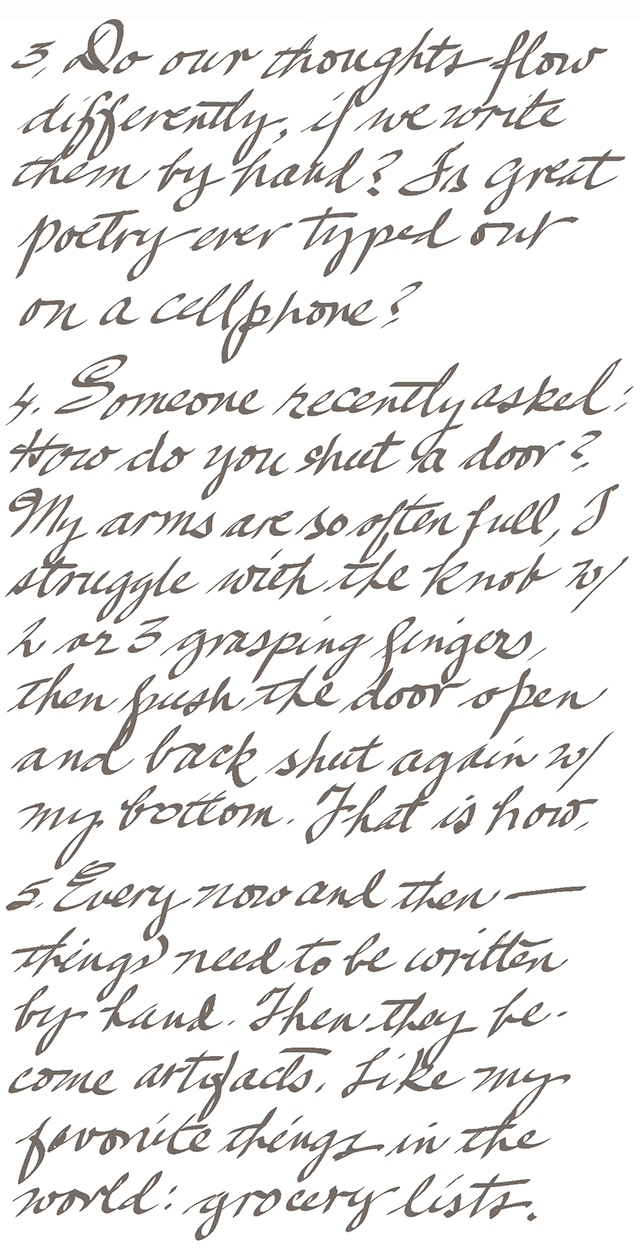 3. Do our thoughts flow
differently, if we write
them by hand? Is great
poetry ever typed out
on a cellphone?
4. Someone recently asked:
How do you shut a door?
My arms are so often full, I
struggle with the knob w/
2 or 3 grasping fingers,
then push the door open
and back shut again w/
my bottom. That is how.
5. Every now and then —
things need to be written
by hand. Then they be-
come artifacts. Like my
favorite things in the
world: grocery lists.